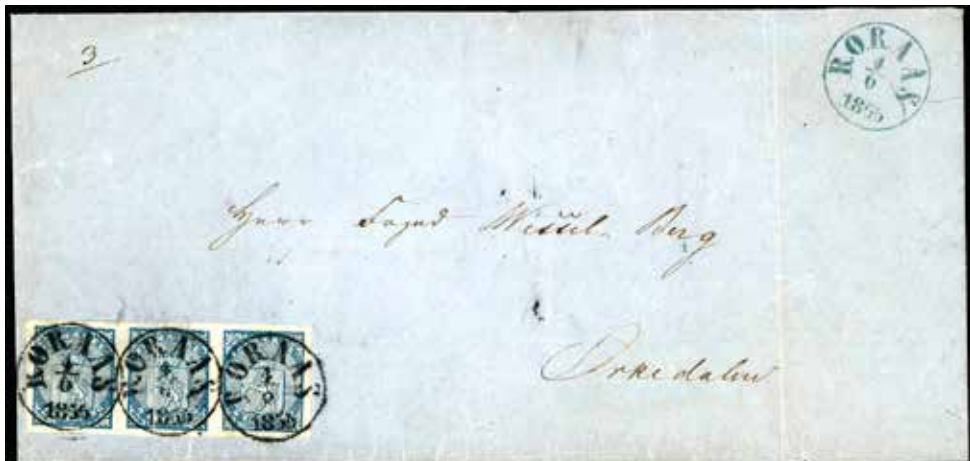 3
RØRAAS
6
1855
Herr Foged Wessel Berg
Orkedalen
RØRAAS
6
1855
RØRAAS
1855
RØRAAS
1855